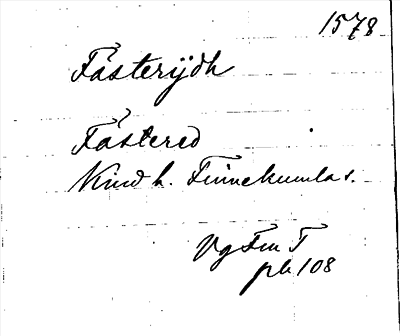 1578
Fåsterijdh
Fåstered
Kind h. Finnekumla s.
Vg Fm T
pb 108